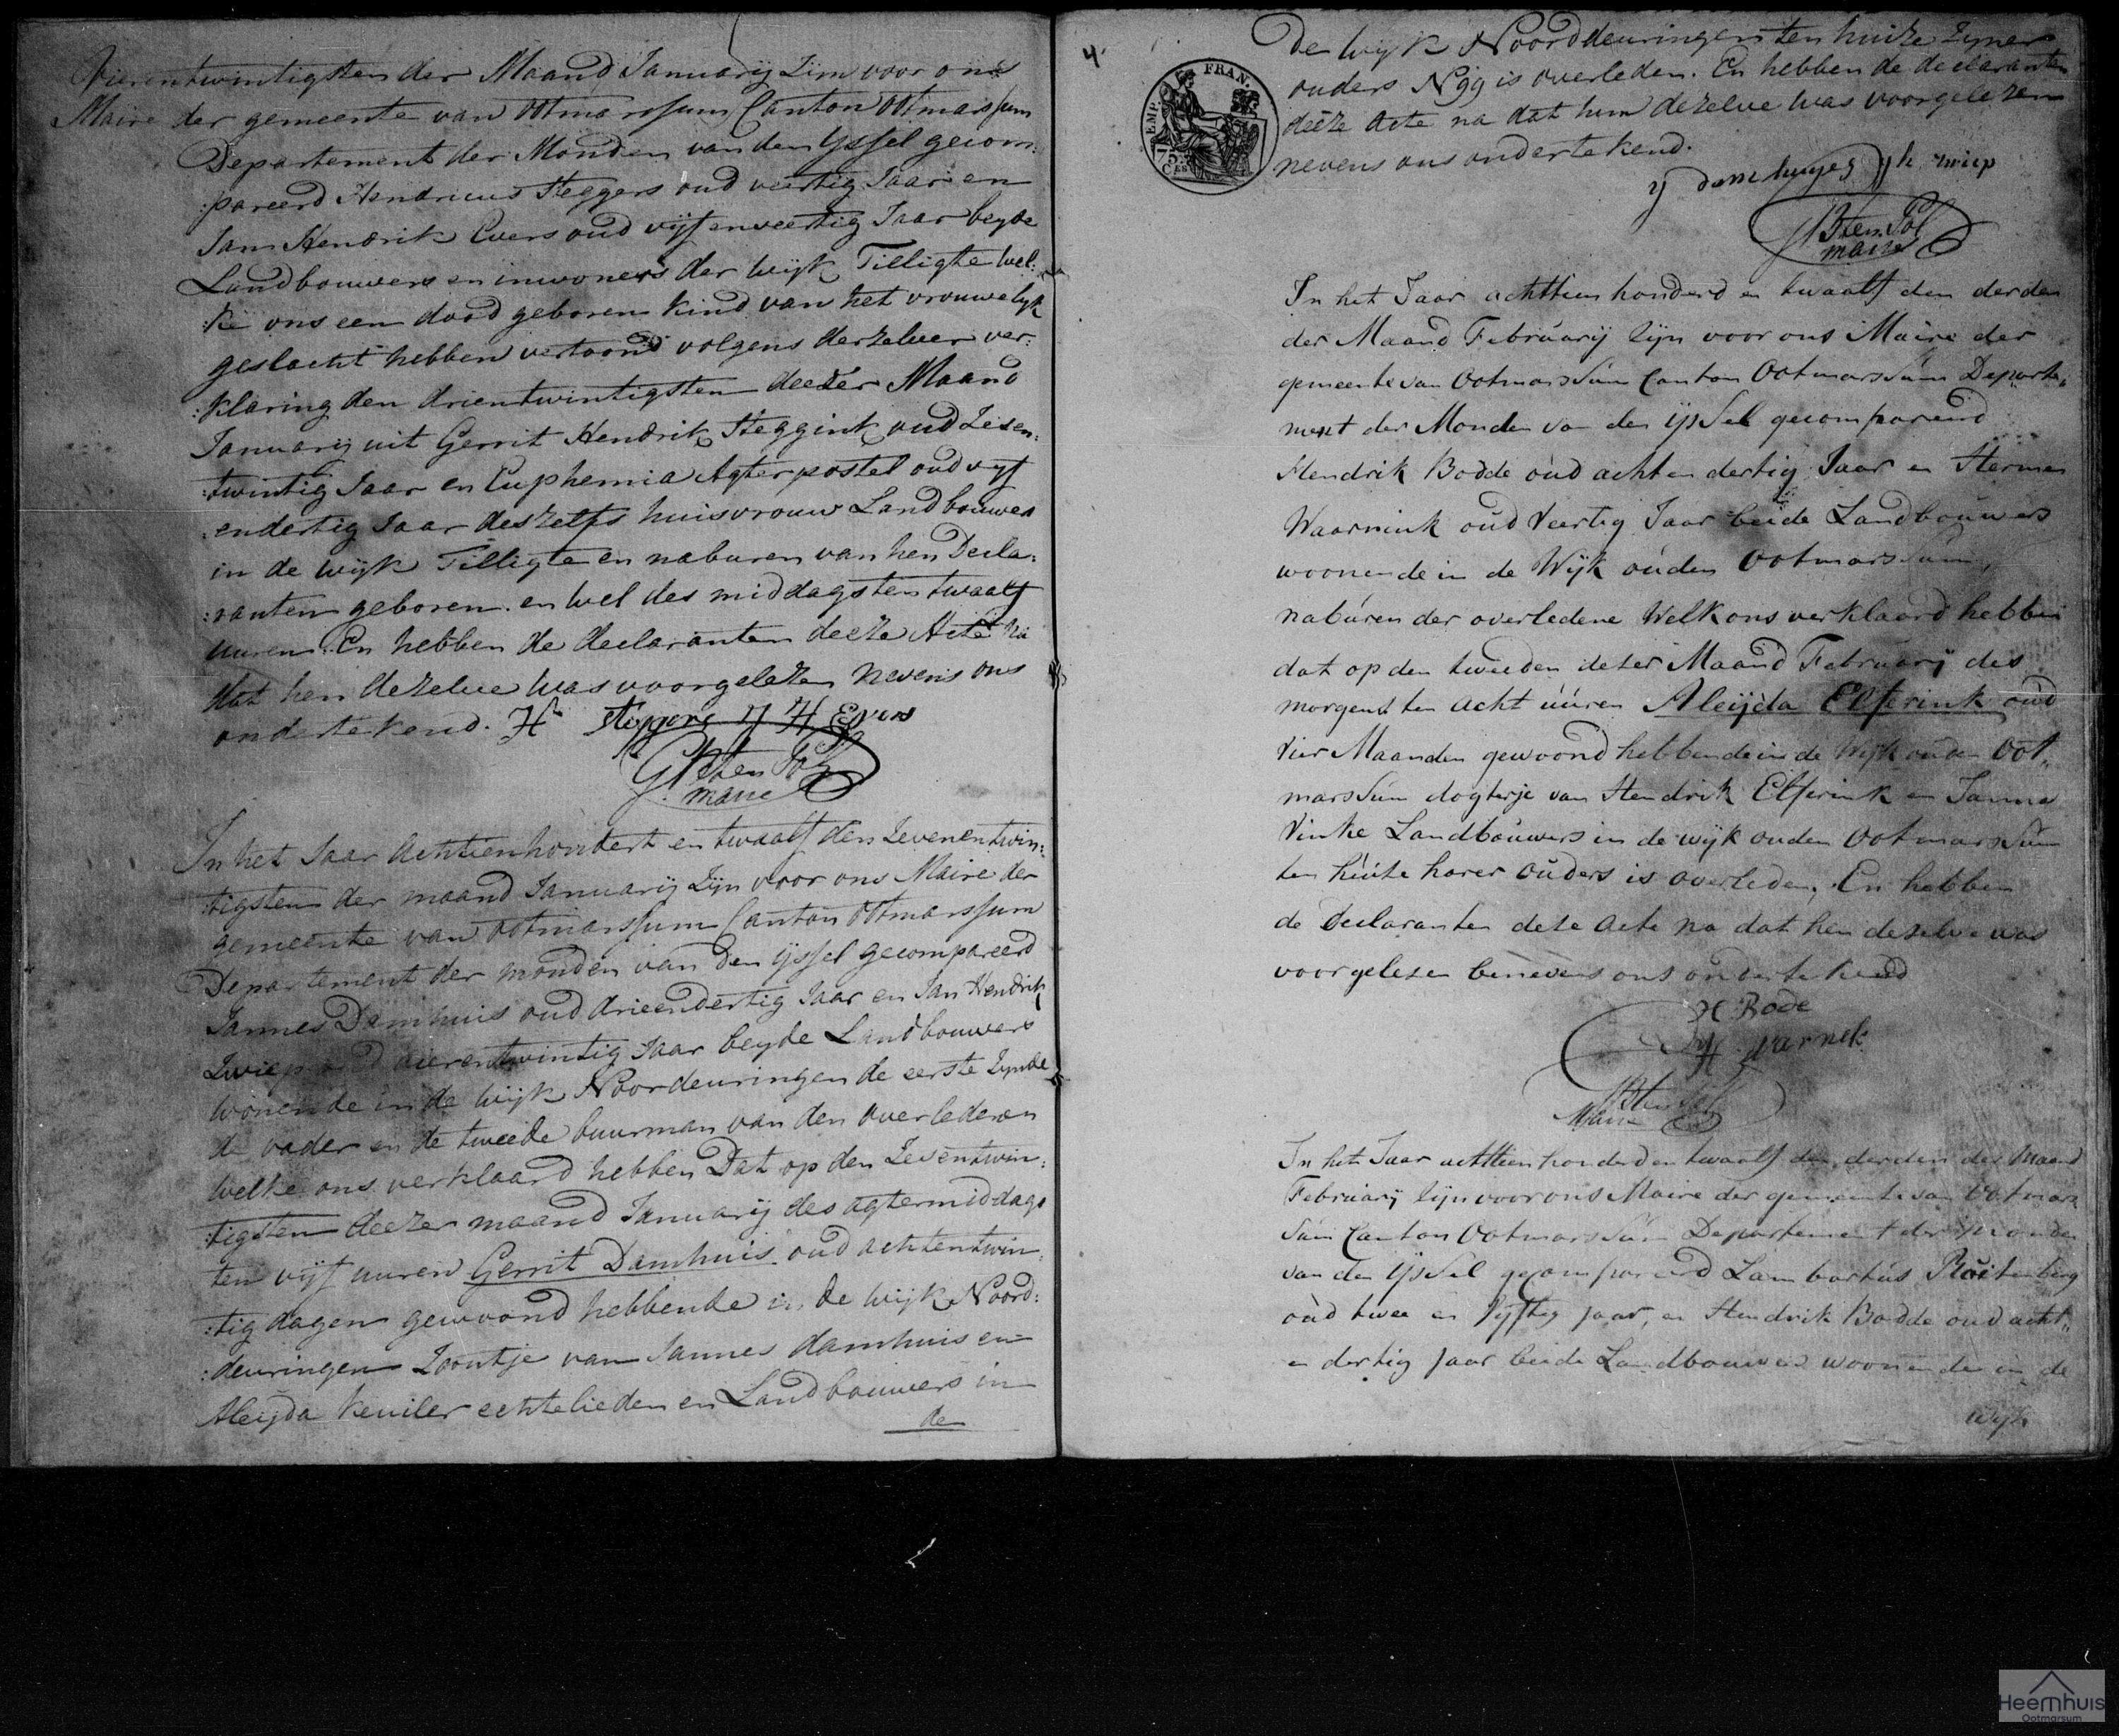 Vierentwintigsten der Maand Januarij Zijn voor ons
Maire der gemeente van Ootmarssum Canton Ootmarssum
Departement der Monden van den Yssel gecom:
:pareerd Hendricus Steggers oud veertig Jaar en
Jan Hendrik Evers oud vijfenveertig Jaar beyde
Landbouwers en inwoners der wijk Tilligte wel:
:ke ons een dood geboren kind van het vrouwelyk
geslacht hebben vertoond volgens derzelver ver:
:klaring den drientwintigsten deezer Maand
Januarij uit Gerrit Hendrik Steggink oud Zesen:
:twintig Jaar en Euphemia Agterpostel oud vyf
:endertig Jaar deszelfs huisvrouw Landbouwers
in de wijk Tilligte en naburen van hen Decla:
:ranten geboren en wel des middags ten twaalf
uuren. En hebben de declaranten deeze Acte na
dat hen dezelve was voorgelezen nevens ons
ondertekend. H steggers J H Evers
G ten Pol
maire
In het Jaar Achtienhondert en twaalf den Zevenentwin:
:tigsten der maand Januarij Zijn voor ons Maire der
gemeente van Ootmarssum Canton Ootmarssum
Departement der monden van den Yssel gecompareerd
Jannes Damhuis oud drieendertig Jaar en Jan Hendrik
Zwiep oud vierentwintig Jaar beyde Landbouwers
wonende in de wijk Noordeuringen de eerste Zynde
de vader en de tweede buurman van den overledenen
welke ons verklaard hebben Dat op den Zeventwin:
:tigsten deezer maand Januarij des agtermiddags
ten vijf uuren Gerrit Damhuis oud achtentwin:
:tig dagen gewoond hebbende in de wijk Noord:
:deuringen Zoontje van Jannes damhuis en
Aleijda Keuiler echtelieden en Landbouwers in
de
4
EMP. FRAN.
75
Ces
De wijk Noorddeuringen ten huize Zyner
ouders N 99 is overleden. En hebben de declaranten
deeze Acte na dat hun dezelve was voorgelezen
nevens ons ondertekend.
J damhuijes J h zwiep
ten Pol
maire
In het Jaar achttien honderd en twaalf den derden
der Maand Februarij Zijn voor ons Maire der
gemeente van Ootmarssum Canton Ootmarssum Departe„
ment der Monden van den ijssel gecompareerd
Hendrik Bodde oud acht en dertig Jaar en Hermen
Waarnink oud Veertig Jaar beide Landbouwers
woonende in de Wijk ouden Ootmarssum,
naburen der overledene Welk ons verklaard hebben
dat op den tweeden dezer Maand Februarij des
morgens ten acht uuren Aleijda Elferink oud
Vier Maanden gewoond hebbende in de Wijk ouden Oot„
marssum dogterje van Hendrik Elferink en Janna
Vinke Landbouwers in de wijk ouden Ootmarssum
ten huize harer ouders is overleden, En hebben
de Declaranten deze acte na dat hen dezelve was
voorgelezen benevens ons ondertekend
H Bode
H warnek
ten Pol
Maire
In het Jaar achttien honderd en twaalf den derden der Maand
Februarij Zijn voor ons Maire der gemeente van Ootmars
sum Canton Ootmarssum Departement der monden
van den ijssel gecompareerd Lambartus Ruitenberg
oud twee en Vyftig jaar, en Hendrik Bodde oud acht„
en dertig jaar beide Landbouwers woonende in de
wijk
Heemhuis
Ootmarsum